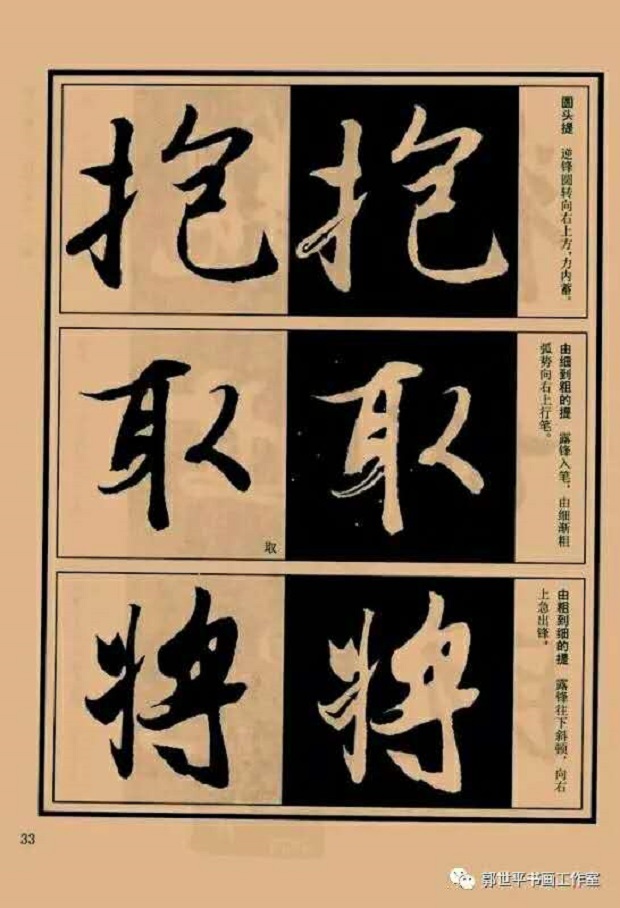 抱
抱
圆头提 逆锋圆转向右上方，力内蓄。
取
取
取
由细到粗的提 露锋入笔，由细渐粗
弧势向右上行笔。
将
将
由粗到细的提 露锋往下斜顿，向右
上急出锋。
33
郭世平书画工作室